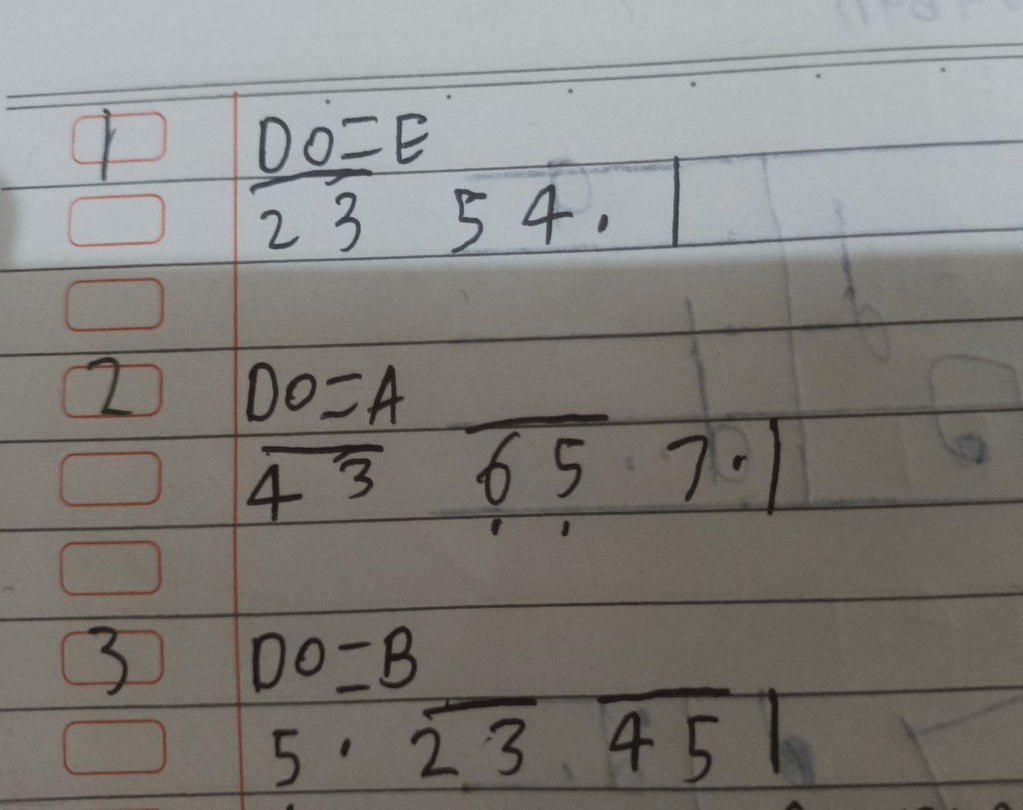 1 DO=E
2 3 5 4 . |
2 DO=A
4 3 6 5 7 . |
3 DO=B
5 . 2 3 4 5 |